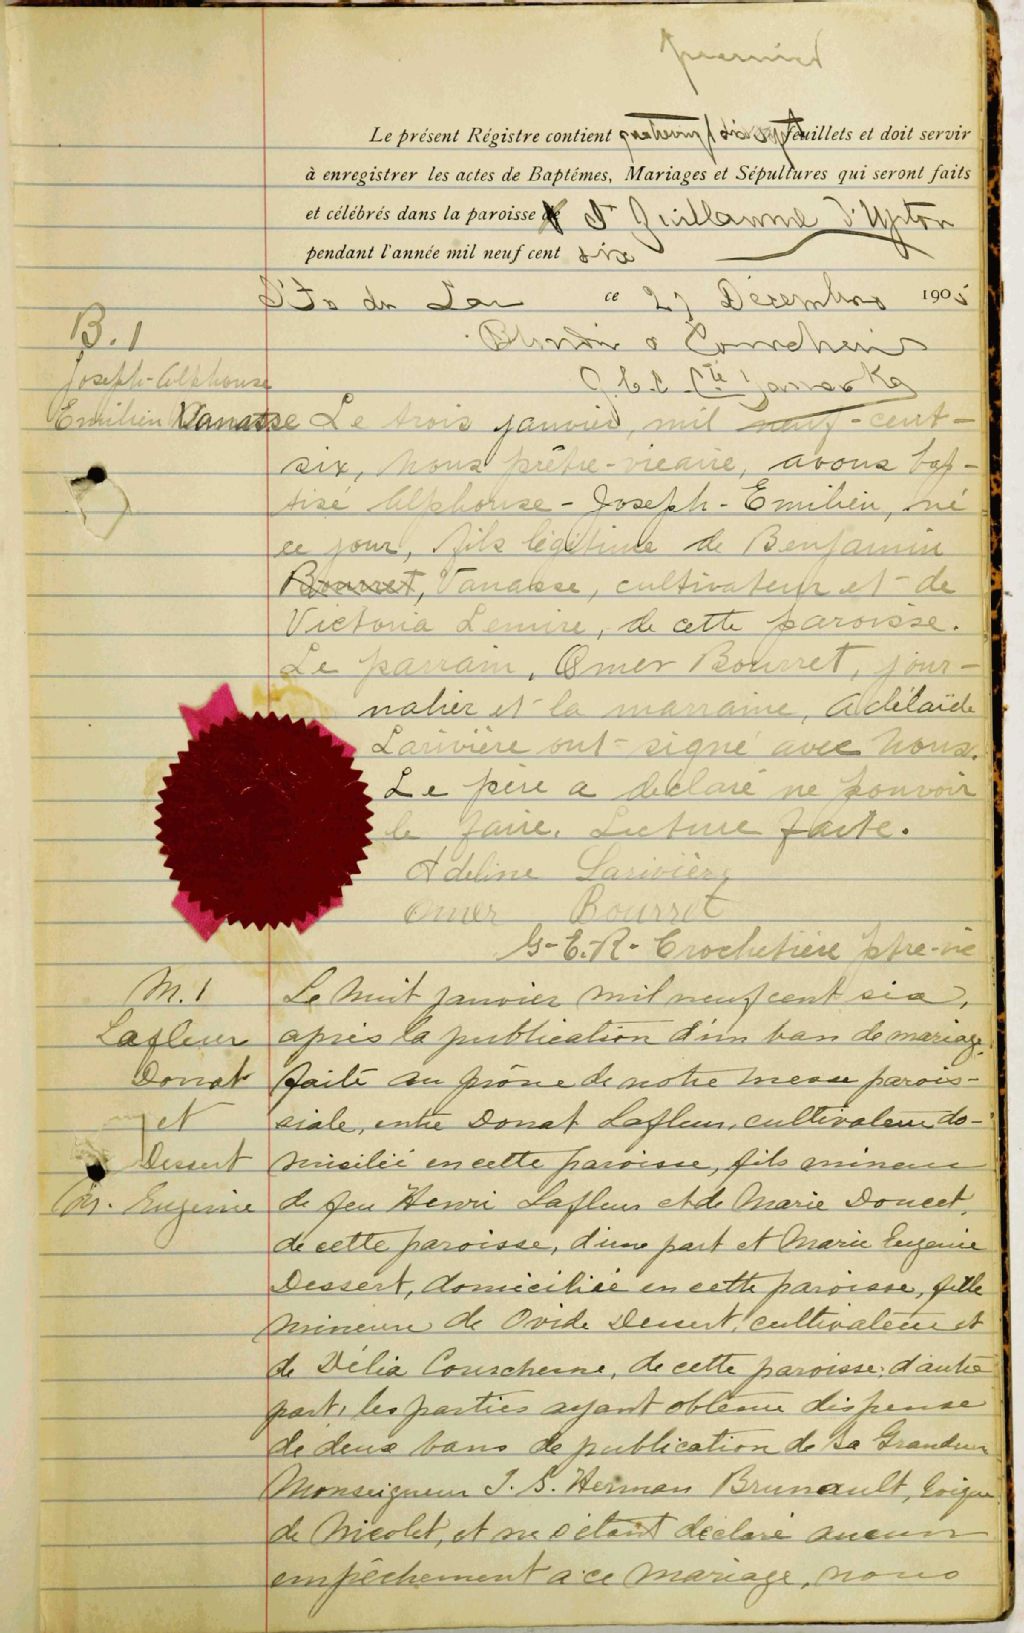 premier
Le présent Régistre contient quatrevingt dix sept feuillets et doit servir
à enregistrer les actes de Baptémes, Mariages et Sépultures qui seront faits
et célébrés dans la paroisse de St Guillaume d'Upton
pendant l'année mil neuf cent six
ce 27 Décembre 1905
B. 1
Joseph-Alphonse
Emilien Vanasse
Le trois janvier, mil neuf-cent-
six, nous prêtre-vicaire, avons bap-
tisé Alphonse-Joseph-Emilien, né
ce jour, fils légitime de Benjamin
Bourret, Vanasse, cultivateur et de
Victoria Lemire, de cette paroisse.
Le parrain, Omer Bourret, jour-
nalier et la marraine, Adélaïde
Larivière ont signé avec nous.
Le père a déclaré ne pouvoir
le faire. Lecture faite.
Adeline Larivière
Omer Bourret
G-E.-R- Crochetière ptre-vic
M. 1
Lafleur
Donat
et
Dessert
M. Eugenie
Le huit janvier mil neuf cent six,
après la publication d'un ban de mariage
faite au prône de notre messe parois-
siale, entre Donat Lafleur, cultivateur do-
micilié en cette paroisse, fils mineur
de feu Henri Lafleur et de Marie Doucet,
de cette paroisse, d'une part et Marie Eugenie
Dessert, domiciliée en cette paroisse, fille
mineure de Ovide Dessert, cultivateur et
de Délia Courchesne, de cette paroisse, d'autre
part, les parties ayant obtenu dispense
de deux bans de publication de Sa Grandeur
Monseigneur J. S. Herman Brunault, Evêque
de Nicolet, et ne s'étant déclaré aucun
empêchement à ce mariage, nous